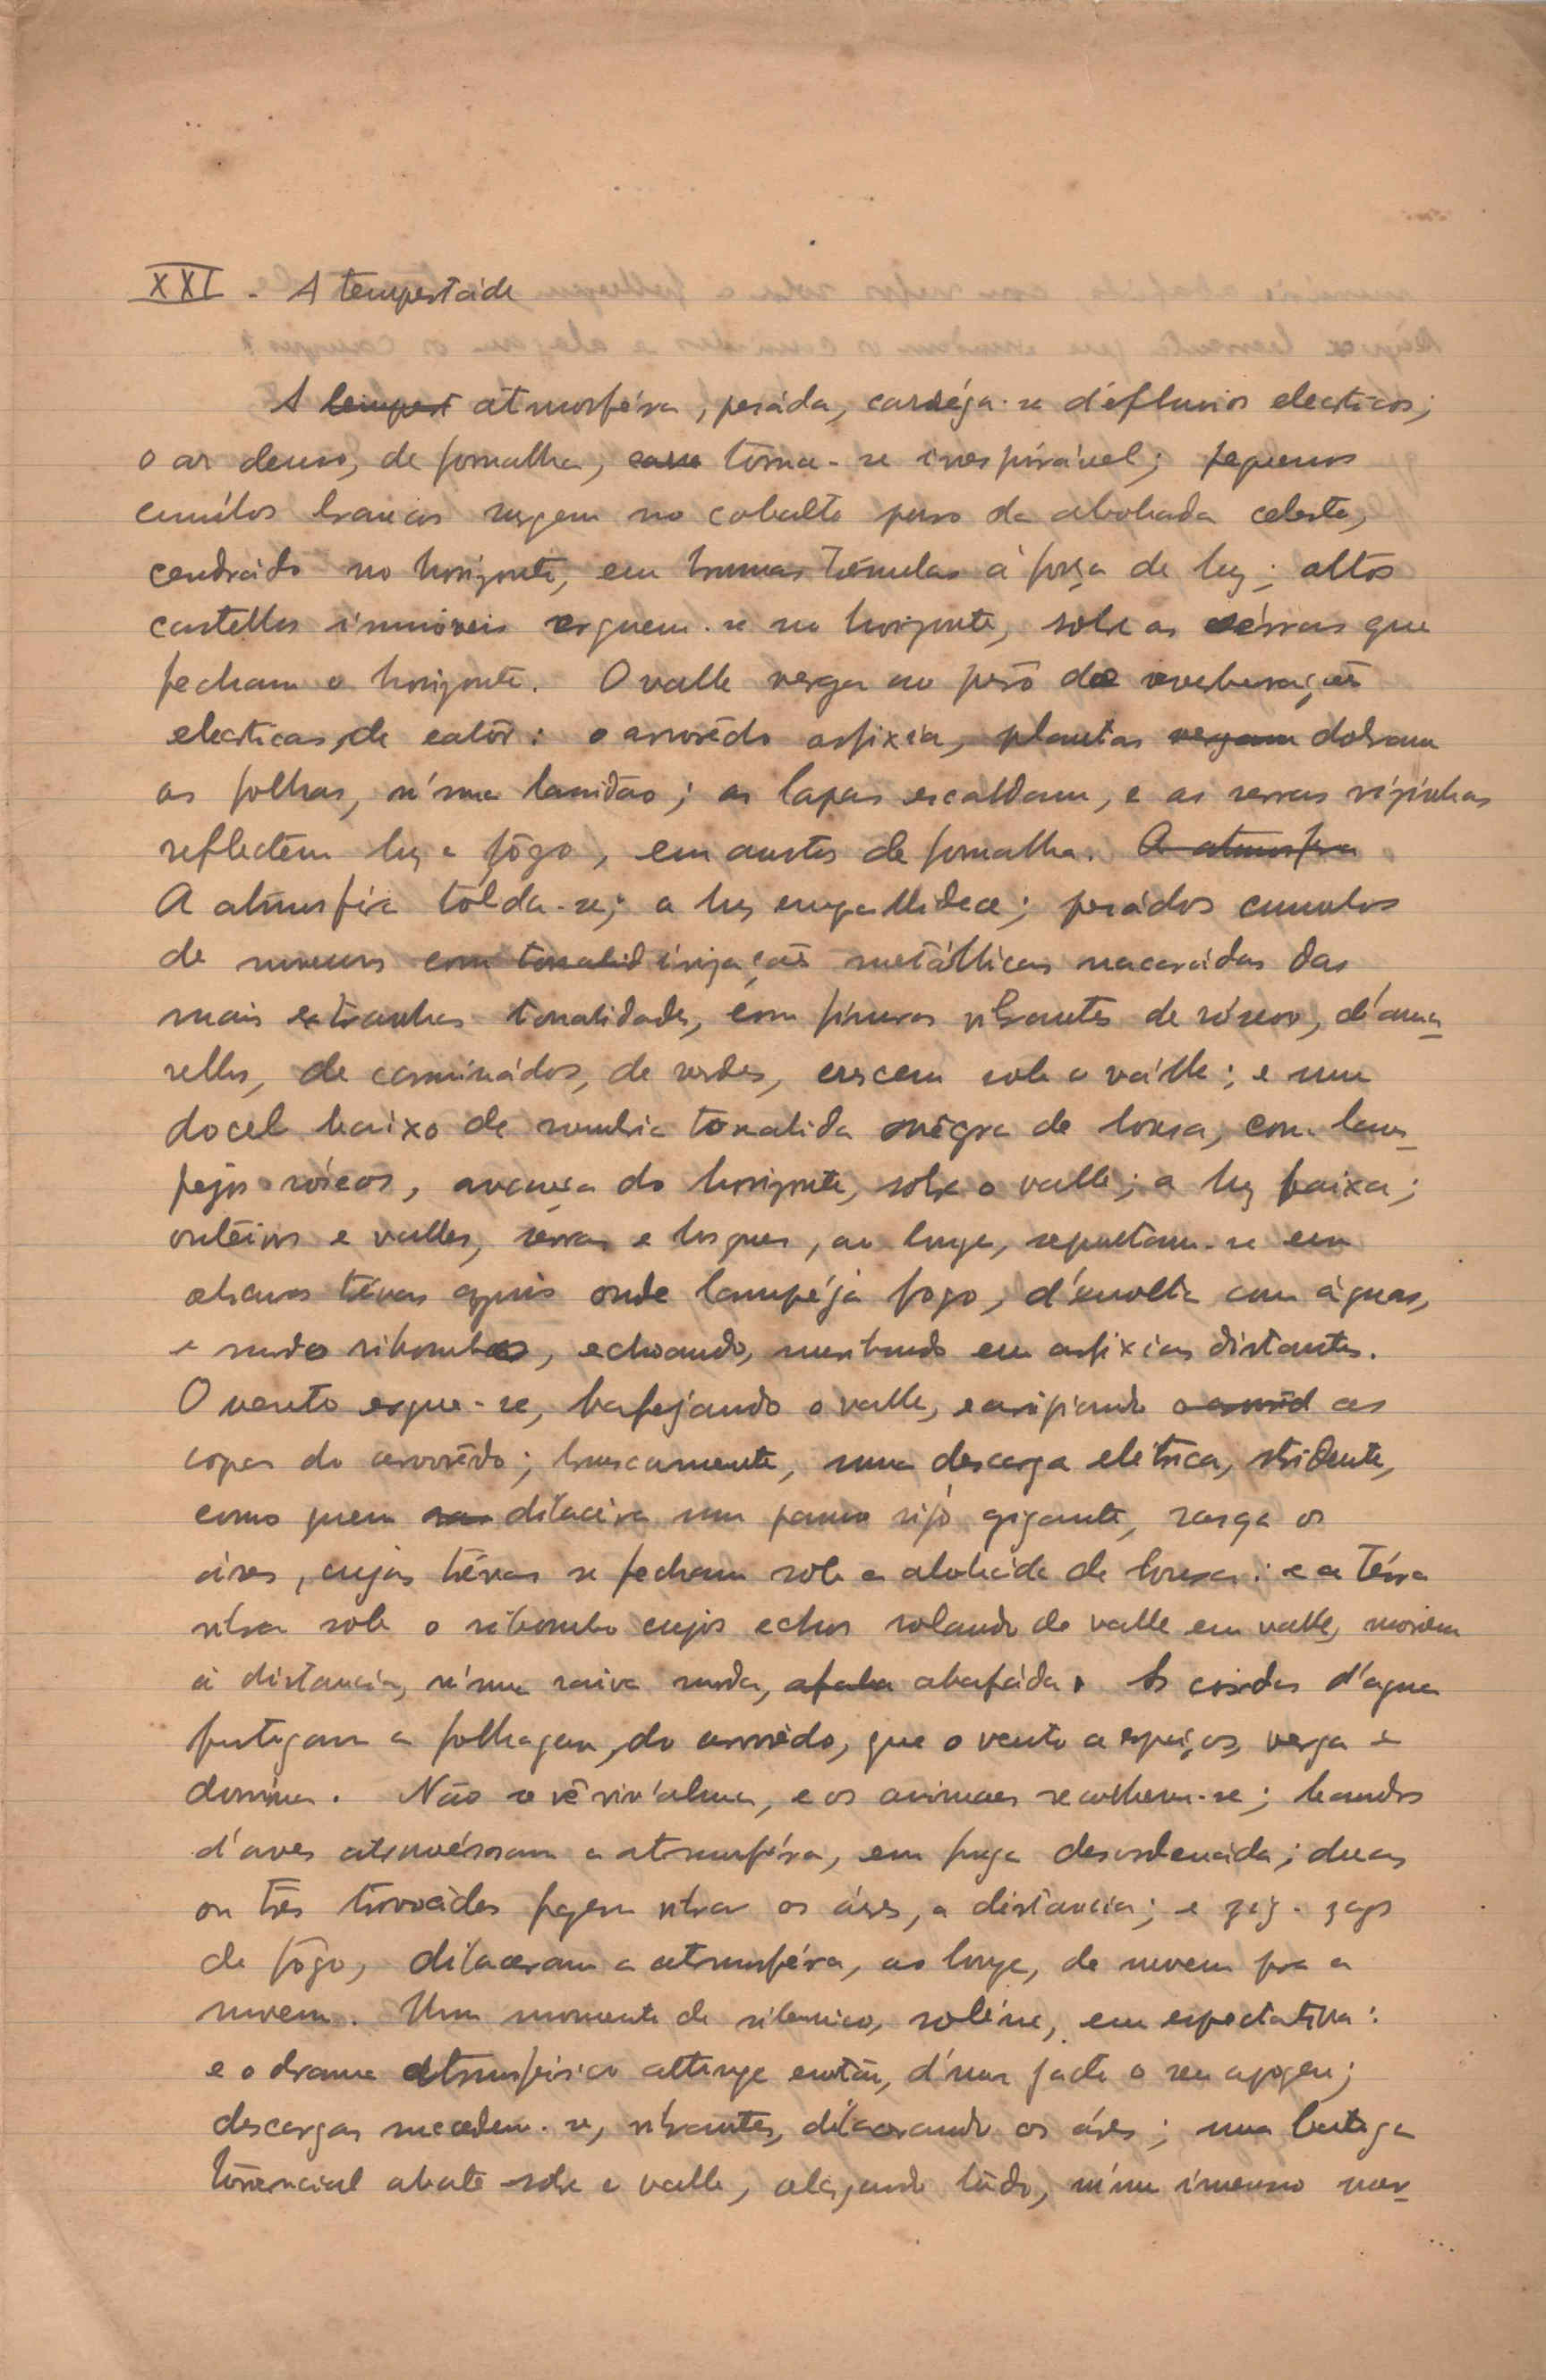 XXI - A tempestáde
A tempest atmosféra, pesáda, carréga-se d'efluvios electicos;
o ar denso, de fornalha, torna-se irrespirável; pequenos
cumúlos brancos surgem no cobalto puro da abobada celeste,
cendrádo no horizonte, em brumas trémulas á força de luz; altos
castellos immóveis erguem-se no horizonte, sobre as sérras que
fecham o horizonte. O valle verga ao pêso de reverberações
electicas, de calôr: o arvorêdo asfixia, plantas vergam dobram
as folhas, n'uma lassidão; as lapas escaldam, e as serras visinhas
reflectem luz e fôgo, em austos de fornalha. A atmosfera
A atmosféra tolda-se; a luz empallidece; pesádos cumulos
de nuvens com tonalid irizações metállicas nacarádas das
mais estranhas tonalidades, com fimbras vibrantes de róseos, d'ama-
rellos, de carminádos, de verdes, crescem sobre o válle; e um
docel baixo de sombria tonalida négra de lousa, com lam-
pejos róseos, avança do horizonte, sobre o valle; a luz baixa;
outêiros e valles, sérras e bosques, ao longe, sepultam-se em
obscuras trévas onde lampéja fogo, d'envolta com águas,
e surdos ribombos, echoando, murmurando em asfixias distantes.
O vento ergue-se, bafejando o valle, e arripiando o arvorêd as
copas do arvorêdo; bruscamente, uma descarga elétrica, stridente,
como quem dilacéra um panno rijo gigante, rasga os
áres, cujas trévas se fecham sob a abobáda de lousa: e a térra
vibra sob o ribombo cujos echos rolando de valle em valle, morrem
á distancia, n'uma raiva surda, abafáda. As córdas d'agua
fustigam a folhagem, do arvorêdo, que o vento a espaços, verga e
domina. Não se vê viv'alma, e os animaes recolhem-se; bandos
d'aves atravéssam a atmosféra, em fuga desordenáda; duas
ou tres trovoádas fazem vibrar os áres, a distancia; e zig-zags
de fôgo, dilaceram a atmosféra, ao longe, de nuvem pra a
nuvem. Um momento de silencio, soléne, em expectativa:
e o drama atmosférico attinge então, d'um jacto o seu apogeu;
descargas sucedem-se, vibrantes, dilacerando os áres; uma bátega
torrencial abate sobre o valle, alagando tudo, n'um imenso mar-